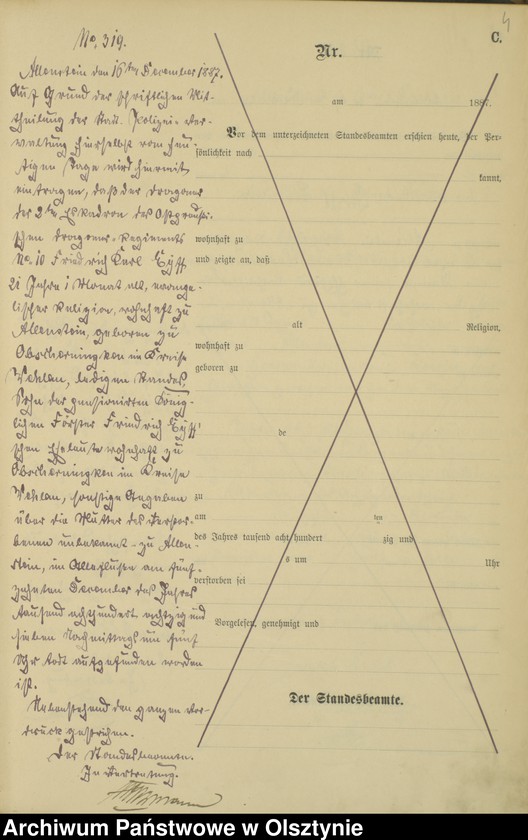 4
C.
No. 319.
Nr.
Allenstein den 16ten December 1887.
Auf Grund der schriftlichen Mit-
theilung der Kön. Polizei-Ver-
waltung hierselbst vom heu-
tigen Tage wird hiermit
eintragen, daß der Dragoner
der 2ten Eskadron des Ostpreußi-
schen Dragoner-Regiments
No. 10 Friedrich Carl
21 Jahre 1 Monat alt, evange-
lischer Religion, wohnhaft zu
Allenstein, geboren zu
im Kreise
Wehlau, ledigen Standes,
Sohn der pensionirten König-
lichen Förster Friedrich
schen Eheleute wohnhaft zu
im Kreise
Wehlau, sonstige Angaben
über die Mutter des Verstor-
benen unbekannt - zu Allen-
stein, im Alleflusse am fünf-
zehnten December des Jahres
tausend achthundert achtzig und
sieben Nachmittags um fünf
Uhr todt aufgefunden worden
ist.
Nebenstehend den ganzen Vor-
druck gestrichen.
Der Standesbeamte.
In Vertretung.
am 1887.
Vor dem unterzeichneten Standesbeamten erschien heute, der Per-
sönlichkeit nach
kannt,
wohnhaft zu
und zeigte an, daß
alt Religion,
wohnhaft zu
geboren zu
de
zu
am ten
des Jahres tausend acht hundert zig und
s um Uhr
verstorben sei
Vorgelesen, genehmigt und
Der Standesbeamte.
Archiwum Państwowe w Olsztynie